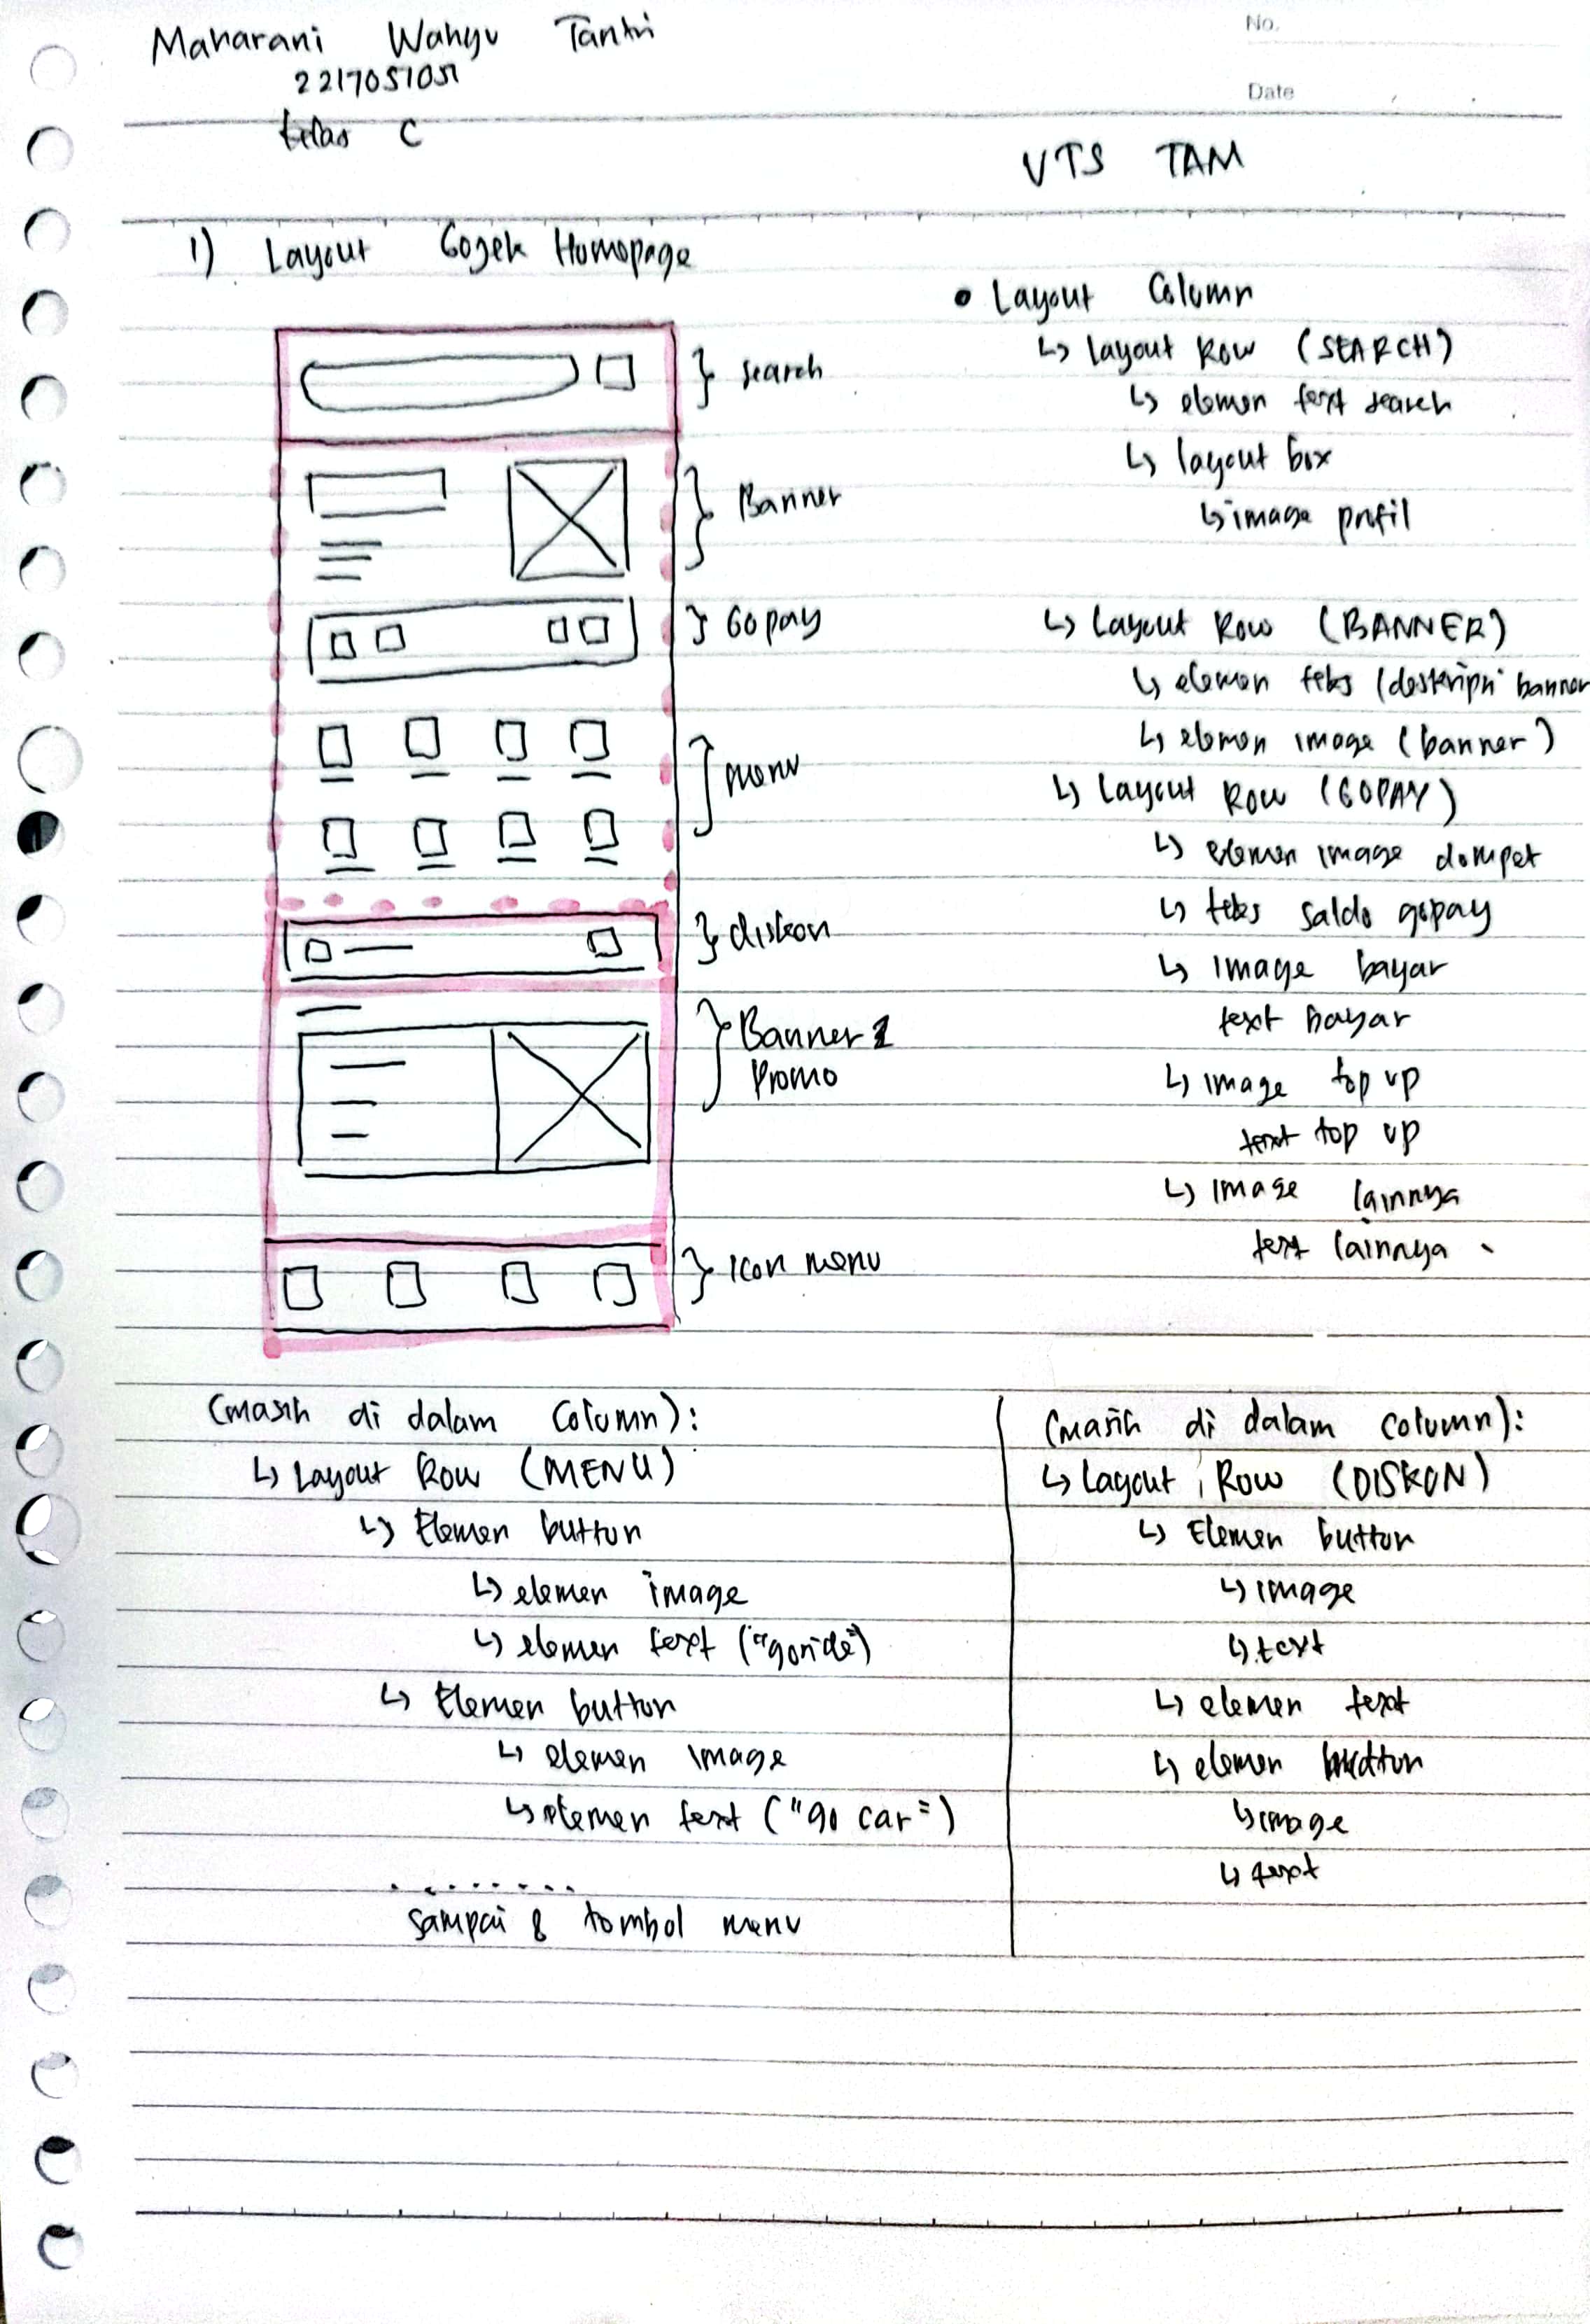 Maharani Wahyu Tantri
2217051051
kelas C
No.
Date
UTS TAM
1) Layout Gojek Homepage
search
Banner
Gopay
menu
diskon
Banner 2
Promo
Icon menu
• Layout Column
↳ layout Row (SEARCH)
↳ elemen text search
↳ layout box
↳ image profil
↳ Layout Row (BANNER)
↳ elemen teks (deskripsi banner
↳ elemen image (banner)
↳ Layout Row (GOPAY)
↳ elemen image dompet
↳ teks saldo gopay
↳ image bayar
text bayar
↳ image top up
text top up
↳ image lainnya
text lainnya
(masih di dalam column):
↳ Layout Row (MENU)
↳ Elemen button
↳ elemen image
↳ elemen text ("goride")
↳ Elemen button
↳ elemen image
↳ elemen text ("go car")
........
sampai 8 tombol menu
(masih di dalam column):
↳ Layout Row (DISKON)
↳ Elemen button
↳ image
↳ text
↳ elemen text
↳ elemen button
↳ image
↳ text